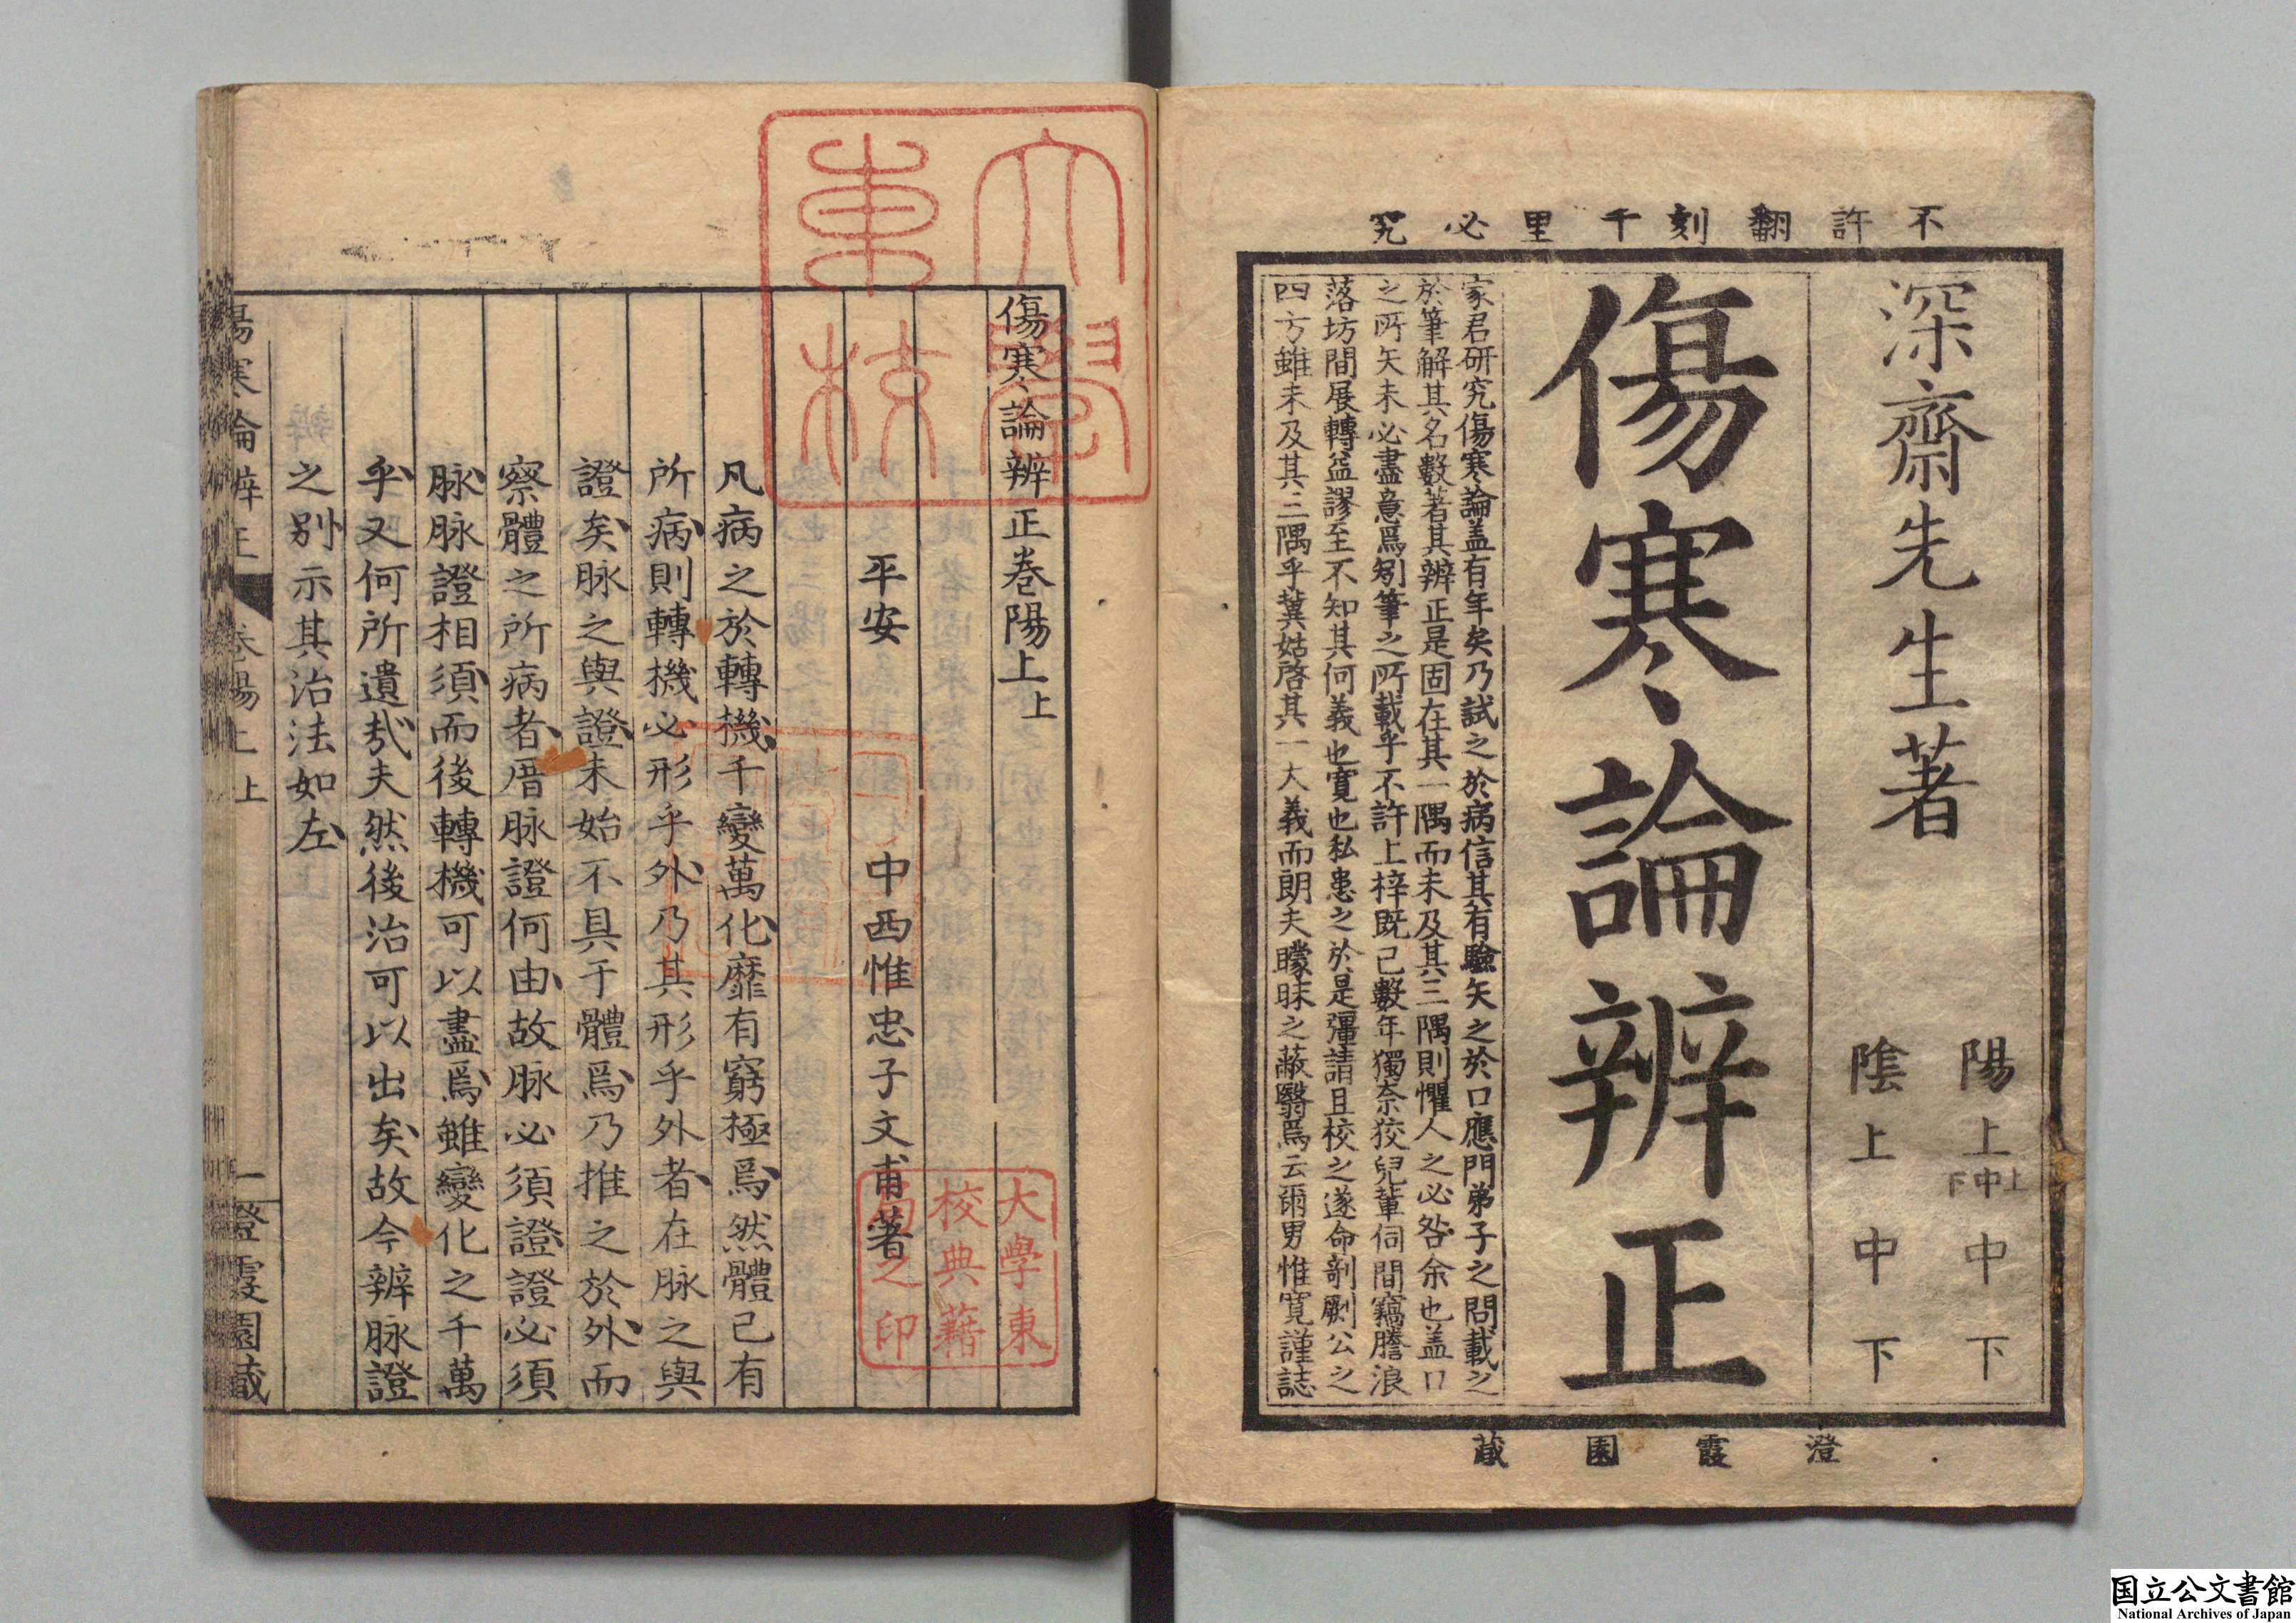 不許翻刻千里必究
深齋先生著
陽上上中下中下
陰上中下
傷寒論辨正
家君研究傷寒論盖有年矣乃試之於病信其有驗矢之於口應門弟子之問載之
於筆解其名數著其辨正是固在其一隅而未及其三隅則懼人之必咎余也盖口
之所矢未必盡意焉矧筆之所載乎不許上梓既已數年獨奈狡兒輩伺間竊謄浪
落坊間展轉益謬至不知其何義也寬也私患之於是彊請且校之遂命剞劂公之
四方雖未及其三隅乎冀姑啓其一大義而朗夫矇昧之蔽翳焉云爾男惟寬謹誌
澄霞園藏
大學東校
傷寒論辨正卷陽上上
平安 中西惟忠子文甫著
大學東
校典藉
之印
凡病之於轉機千變萬化靡有窮極焉然體已有
所病則轉機必形乎外乃其形乎外者在脉之與
證矣脉之與證未始不具于體焉乃推之於外而
察體之所病者厝脉證何由故脉必須證證必須
脉脉證相須而後轉機可以盡焉雖變化之千萬
乎又何所遺哉夫然後治可以出矣故今辨脉證
之別示其治法如左
傷寒論辨正 卷陽上上 一 澄霞園藏
国立公文書館
National Archives of Japan